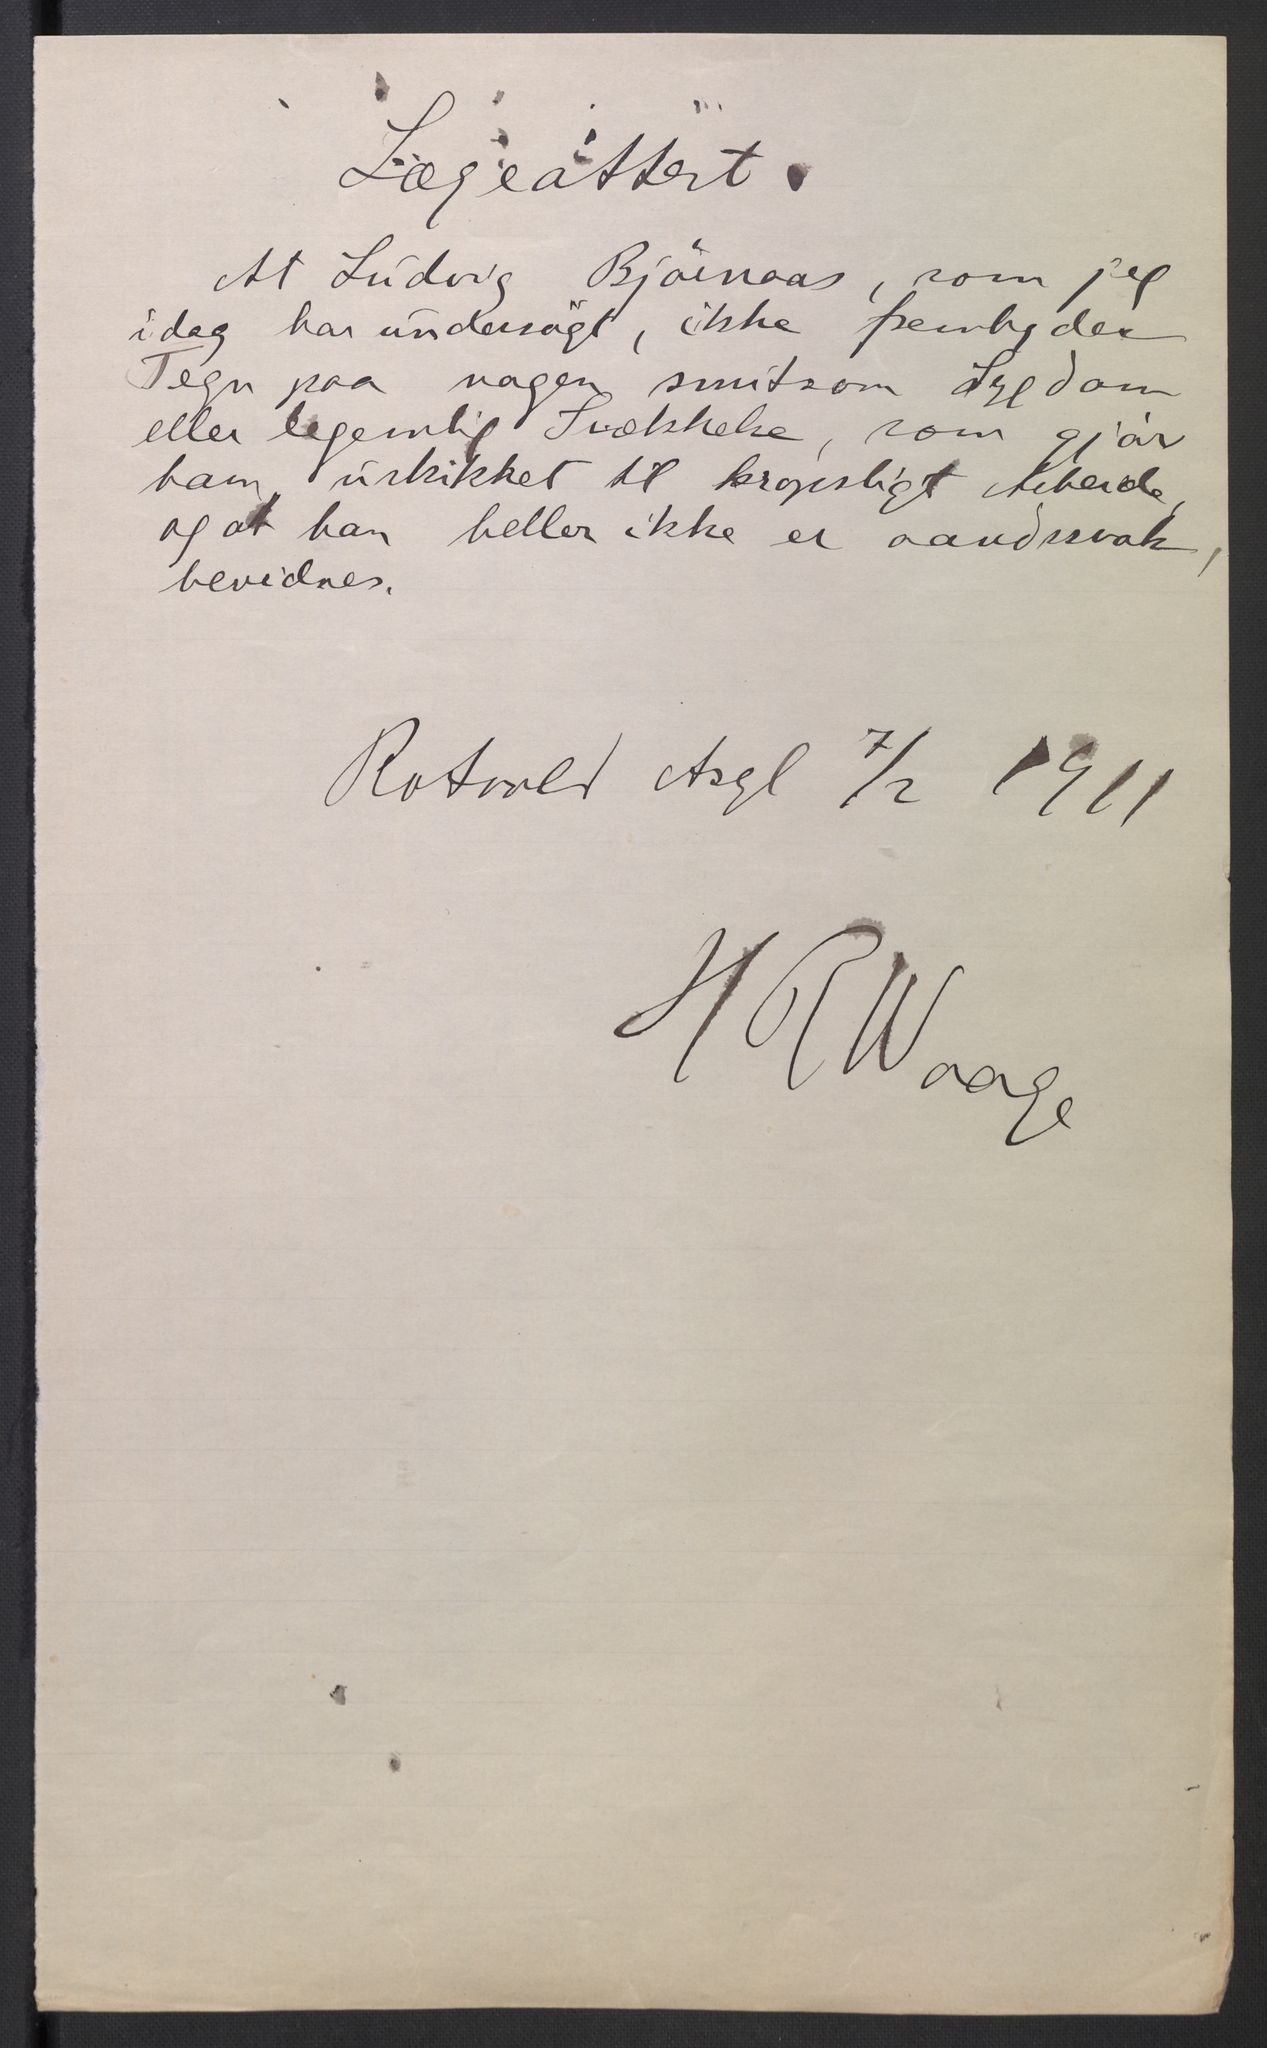 Lægeattest.
At Ludvig Bjørnaas, som jeg
idag har undersøgt, ikke frembyder
Tegn paa nogen smitsom Sygdom
eller legemlig Svækkelse, som gjør
ham uskikket til kropsligt Arbeide,
og at han heller ikke er aandssvak,
bevidnes.
Rotvold Asyl 7/2 1911
H R Waage